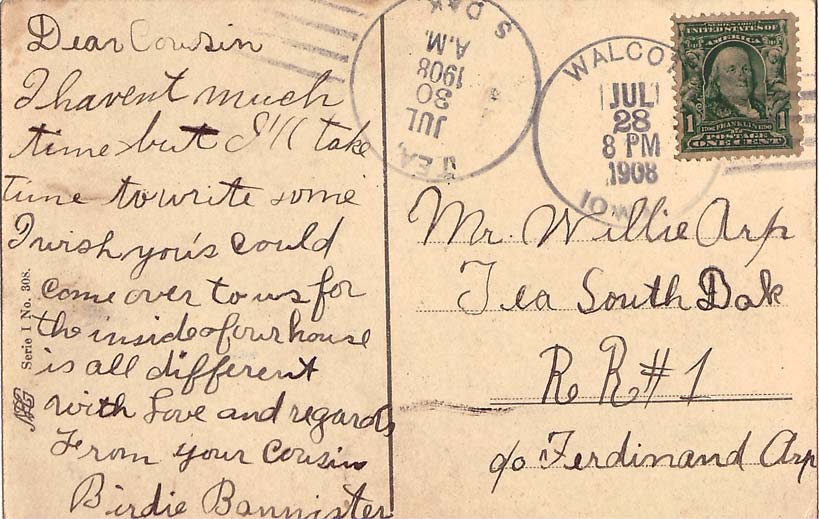 Dear Cousin
I havent much
time but I'll take
time to write some
I wish you's could
come over to us for
the inside of our house
is all different
with Love and regards
From your Cousin
Birdie Bannister
Serie 1 No. 308.
TEA, S DAK.
JUL
30
A.M.
1908
WALCO
JUL
28
8 PM
1908
IOWA
SERIES 1902
UNITED STATES OF
AMERICA
1 1
1706 FRANKLIN 1790
POSTAGE
ONE CENT
Mr. Willie Arp
Tea South Dak
R R # 1
c/o Ferdinand Arp